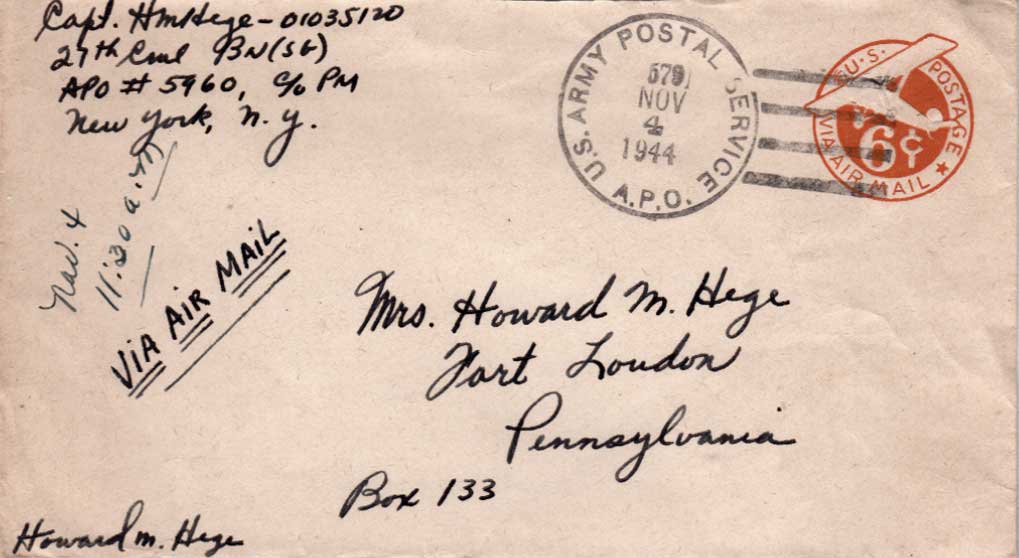 Capt. HMHege - 01035120
27th Cml BN (SG)
APO # 5960, c/o PM
New York, N.Y.
U.S. ARMY POSTAL SERVICE
579
NOV
4
1944
A.P.O.
U.S. POSTAGE
6¢
VIA AIR MAIL
Nov. 4
11:30 a.m
VIA AIR MAIL
Mrs. Howard M. Hege
Fort Loudon
Pennsylvania
Box 133
Howard M. Hege